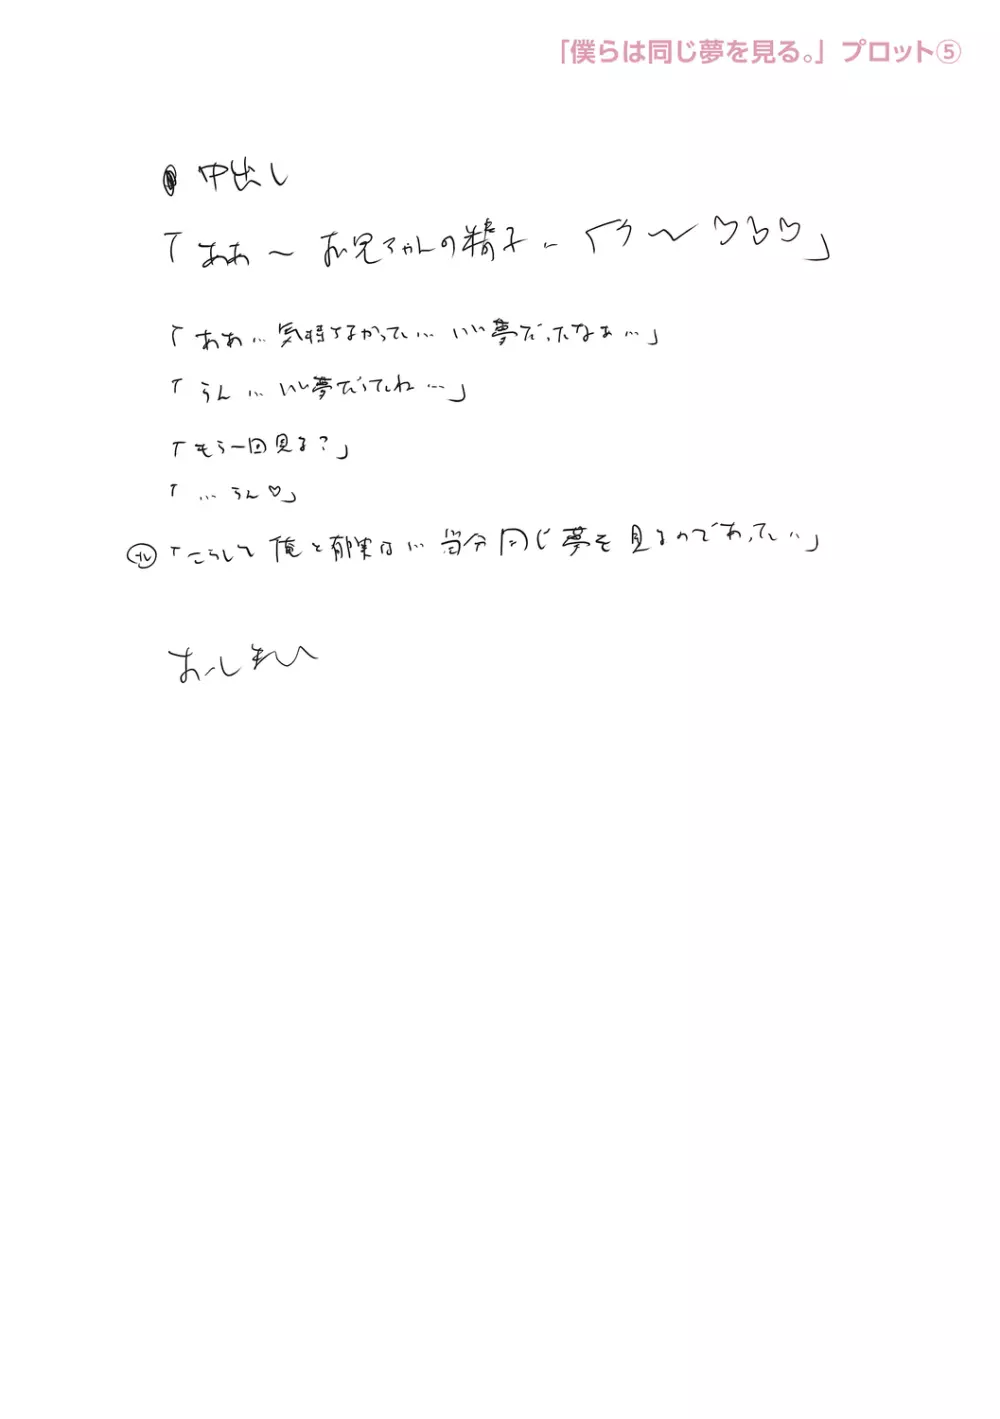 「僕らは同じ夢を見る。」 プロット⑤
中出し
「ああ～ お兄ちゃんの精子… くる～♡♡♡」
「ああ… 気持よかった… いい夢だったなぁ…」
「うん… いい夢だったね…」
「もう一回見る？」
「…うん♡」
「こうして 俺と郁実は… 当分 同じ夢を見るのであった…」
おしまい